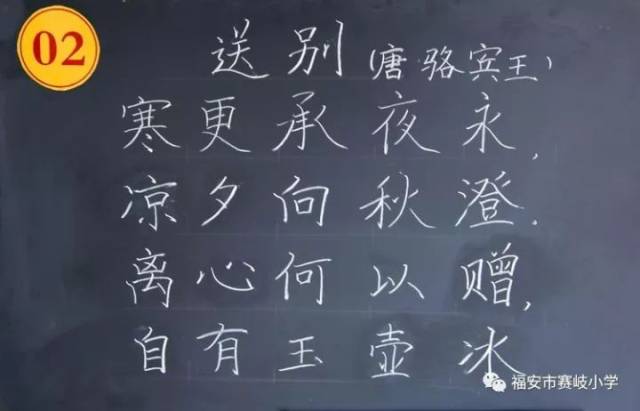 02
送别(唐 骆宾王)
寒更承夜永,
凉夕向秋澄.
离心何以赠,
自有玉壶冰
福安市赛岐小学